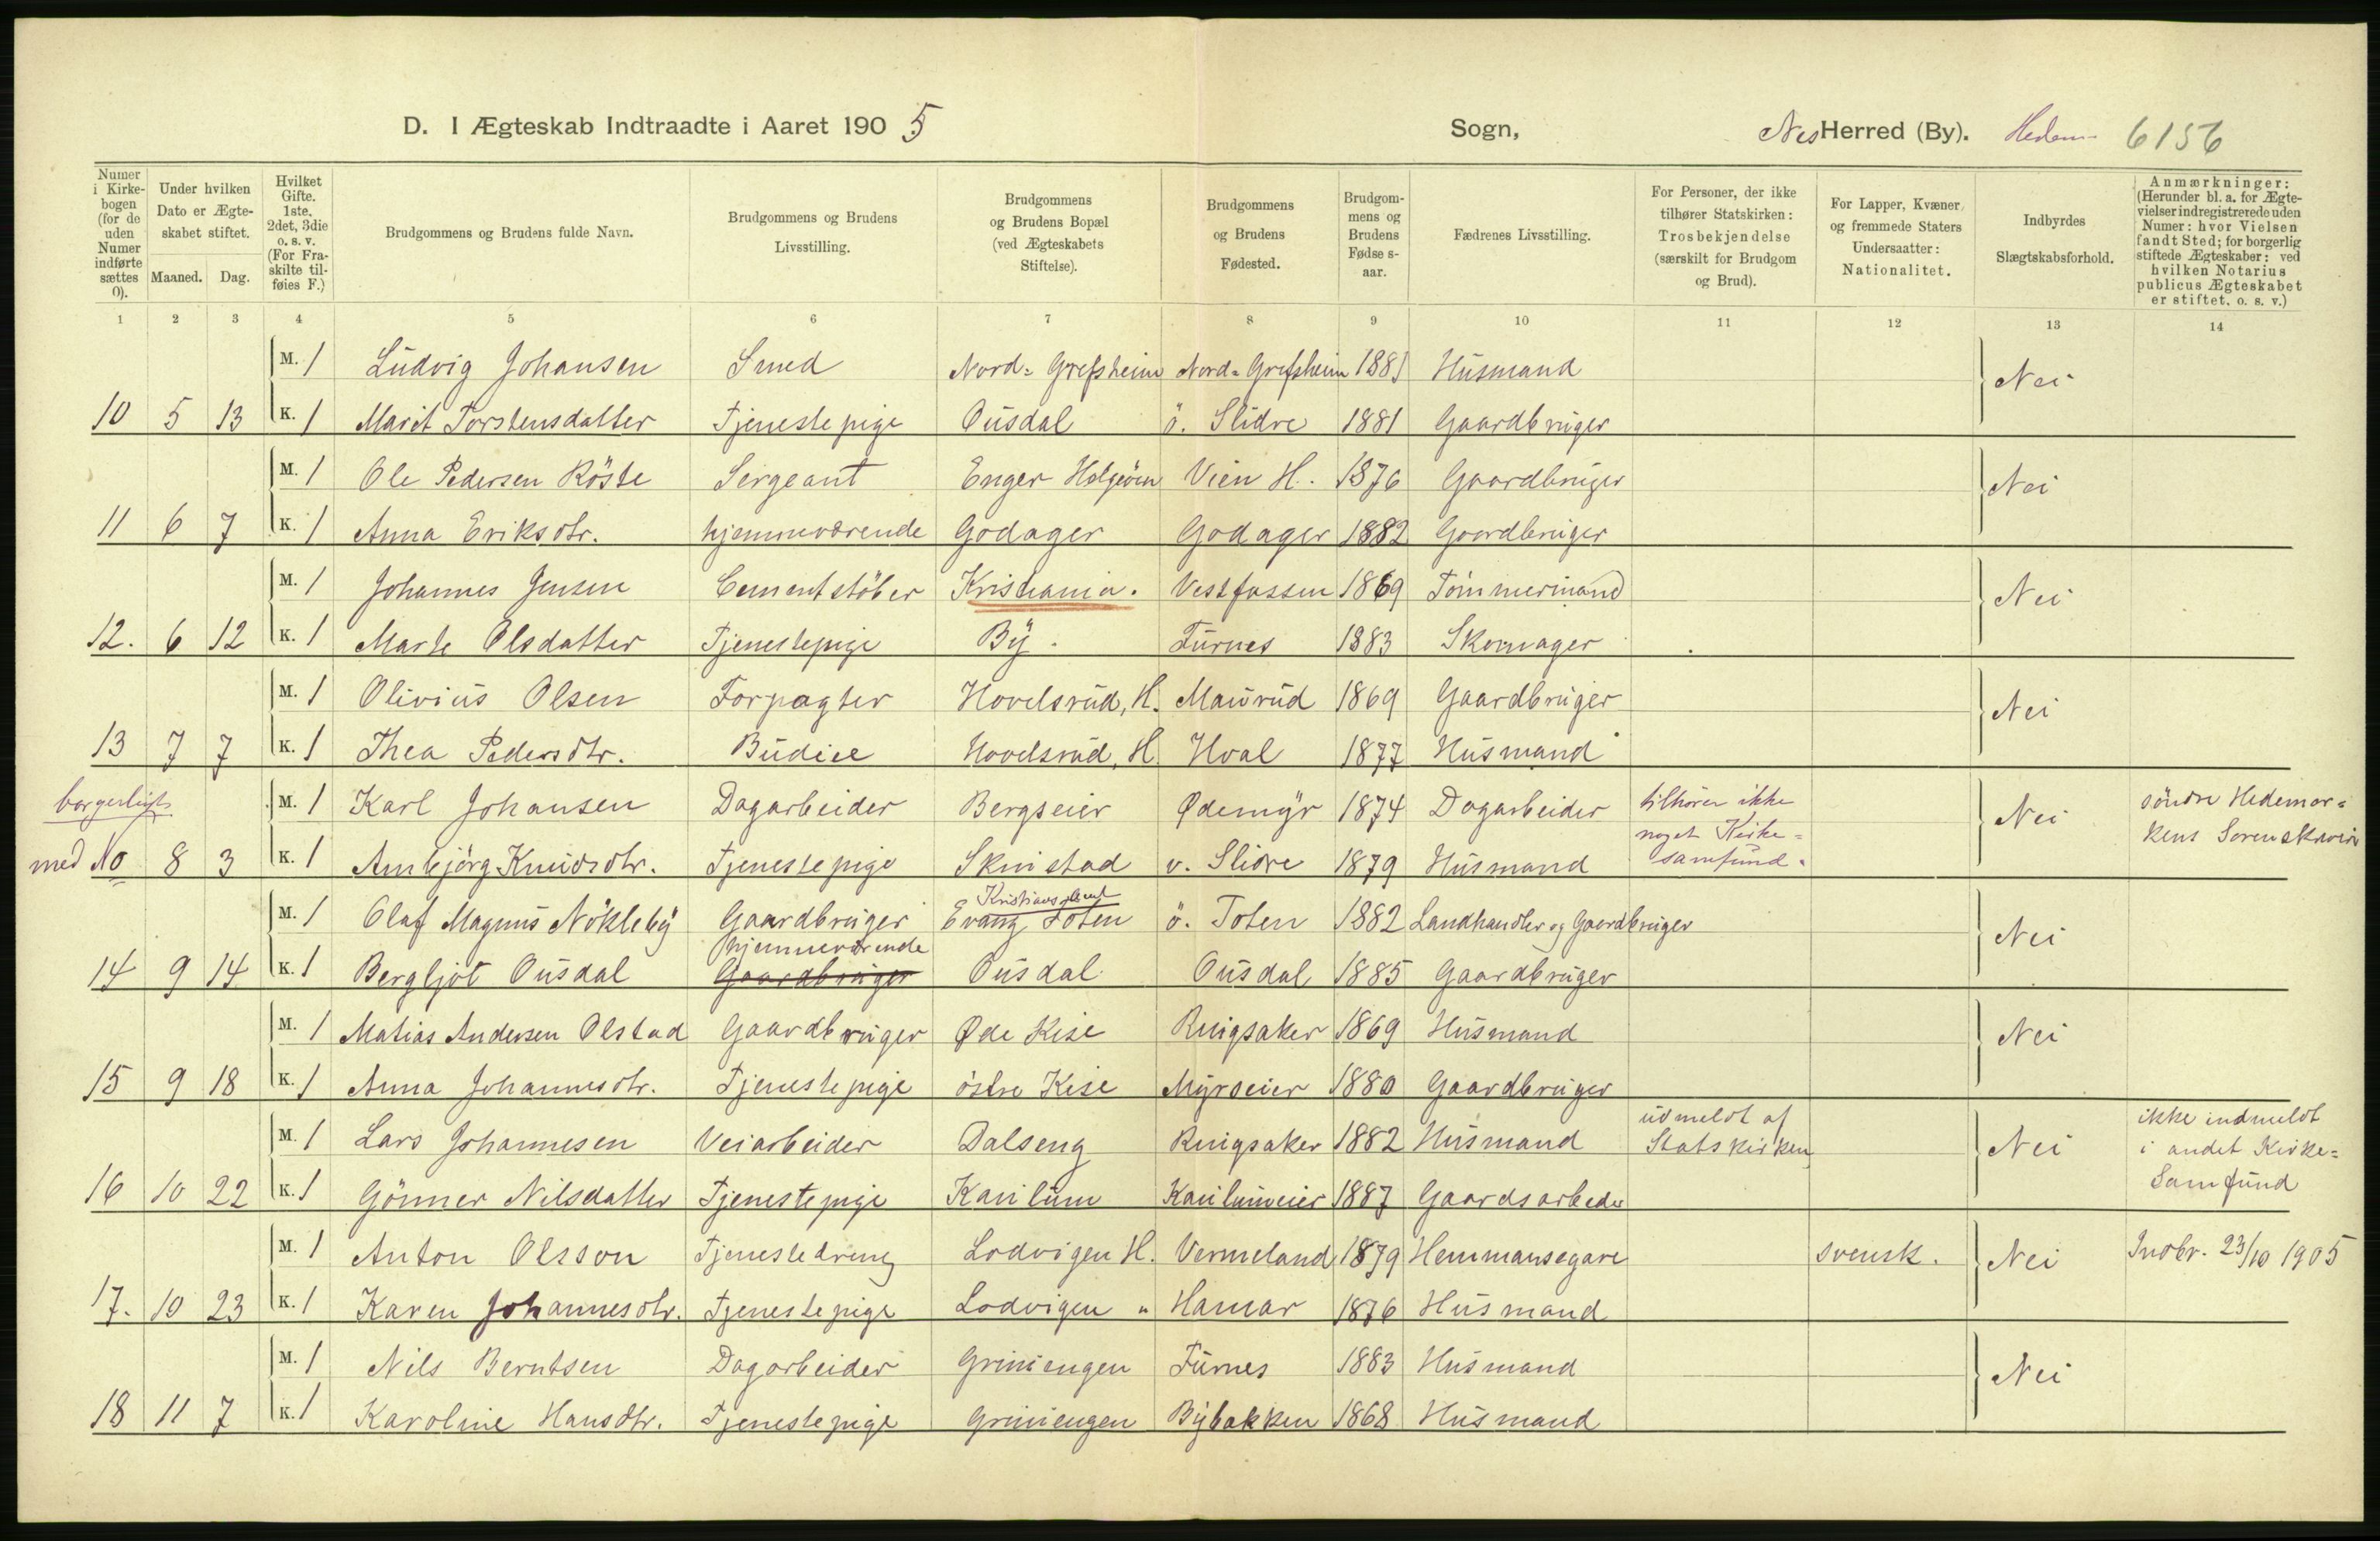 D. I Ægteskab Indtraadte i Aaret 1905 Sogn, Nes Herred (By). Hedem. 6156
Numer i Kirkebogen (for de uden Numer indførte sættes 0).
Under hvilken Dato er Ægteskabet stiftet.
Maaned. Dag.
Hvilket Gifte. 1ste, 2det, 3die o. s. v. (For Fraskilte tilføies F.)
Brudgommens og Brudens fulde Navn.
Brudgommens og Brudens Livsstilling.
Brudgommens og Brudens Bopæl (ved Ægteskabets Stiftelse).
Brudgommens og Brudens Fødested.
Brudgommens og Brudens Fødselsaar.
Fædrenes Livsstilling.
For Personer, der ikke tilhører Statskirken: Trosbekjendelse (særskilt for Brudgom og Brud).
For Lapper, Kvæner og fremmede Staters Undersaatter: Nationalitet.
Indbyrdes Slægtskabsforhold.
Anmærkninger: (Herunder bl. a. for Ægtevielser indregistrerede uden Numer: hvor Vielsen fandt Sted; for borgerlig stiftede Ægteskaber: ved hvilken Notarius publicus Ægteskabet er stiftet, o. s. v.)
1 2 3 4 5 6 7 8 9 10 11 12 13 14
M. 1 Ludvig Johansen Smed Nord=Grefsheim Nord=Grefsheim 1881 Husmand Nei
10 5 13 K. 1 Marit Torstensdatter Tjenestepige Ousdal ö. Slidre 1881 Gaardbruger
M. 1 Ole Pedersen Röste Sergeant Enger Vien H. 1876 Gaardbruger Nei
11 6 7 K. 1 Anna Eriksdtr. hjemmeværende Godager Godager 1882 Gaardbruger
M. 1 Johannes Jensen Cementstöber Kristiania. Vestfossen 1869 Tömmermand Nei
12. 6 12 K. 1 Marte Olsdatter Tjenestepige By. Furnes 1883 Skomager
M. 1 Olivius Olsen Forpagter Hovelsrud, H. Maurud 1869 Gaardbruger Nei
13 7 7 K. 1 Thea Pedersdtr. Budeie Hovelsrud, H. Hval 1877 Husmand
borgerligt M. 1 Karl Johansen Dagarbeider Bergseier Ødemyr 1874 Dagarbeider tilhører ikke Nei söndre Hedemar=
med No 8 3 K. 1 Ambjörg Knudsdtr. Tjenestepige Skristad v. Slidre 1879 Husmand noget Kirke=samfund. kens Sorenskriver
M. 1 Olaf Magnus Nökleby Gaardbruger Kristians Amt Evang Toten ö. Toten 1882 Landhandler og Gaardbruger Nei
hjemmeværende
14 9 14 K. 1 Bergljot Ousdal Gaardbruger Ousdal Ousdal 1885 Gaardbruger
M. 1 Matias Andersen Olstad Gaardbruger Øde Kise Ringsaker 1869 Husmand Nei
15 9 18 K. 1 Anna Johannesdtr. Tjenestepige östre Kise Myrseier 1880 Gaardbruger
M. 1 Lars Johannesen Veiarbeider Dalseng Ringsaker 1882 Husmand udmeldt af Statskirken Nei ikke indmeldt i andet Kirke=
16 10 22 K. 1 Gönner Nilsdatter Tjenestepige Karilum Karilumeier 1887 Gaardsarbeder Samfund
M. 1 Anton Olsson Tjenestedreng Lodvigen H. Vermeland 1879 Hemmansegare svensk. Nei Indbr. 23/10 1905
17. 10 23 K. 1 Karen Johannesdtr. Tjenestepige Lodvigen " Hamar 1876 Husmand
M. 1 Nils Berntsen Dagarbeider Griniengen Furnes 1883 Husmand Nei
18 11 7 K. 1 Karoline Hansdtr. Tjenestepige Griniengen Bybakken 1868 Husmand